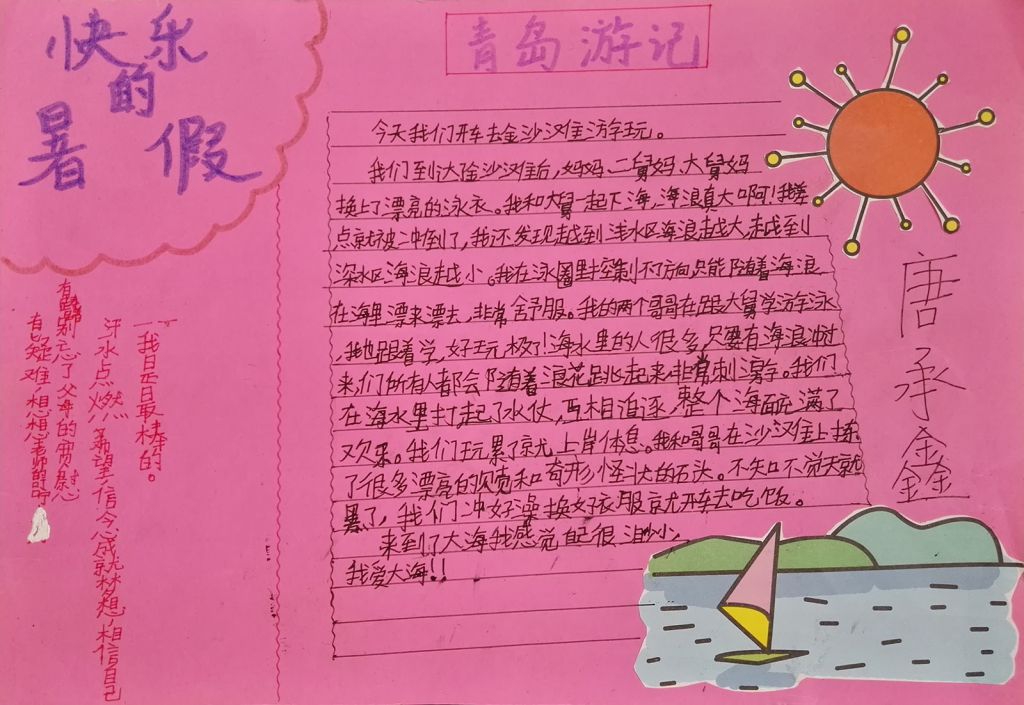 快乐
的
暑假
青岛游记
今天我们开车去金沙滩游玩。
我们到达金沙滩后,妈妈、二舅妈、大舅妈
换上了漂亮的泳衣。我和大舅一起下海,海浪真大啊!我差
点就被冲倒了,我还发现越到浅水区海浪越大,越到
深水区海浪越小。我在泳圈里控制不了方向只能随着海浪
在海里漂来漂去,非常舒服。我的两个哥哥在跟大舅学游泳
,我也跟着学,好玩极了!海水里的人很多,只要有海浪冲过
来,们所有人都会随着浪花跳起来非常刺激。我们
在海水里打起了水仗,互相追逐,整个海面充满了
欢乐。我们玩累了就上岸休息。我和哥哥在沙滩上拣
了很多漂亮的贝壳和奇形怪状的石头。不知不觉天就
黑了,我们冲好澡换好衣服就开车去吃饭。
来到了大海我感觉自己很渺小,
我爱大海!!
唐承鑫
一我日否日最棒的。
汗水点燃希望,信念成就梦想,相信自己
有别忘了父母的
有疑难想想老师的叮咛